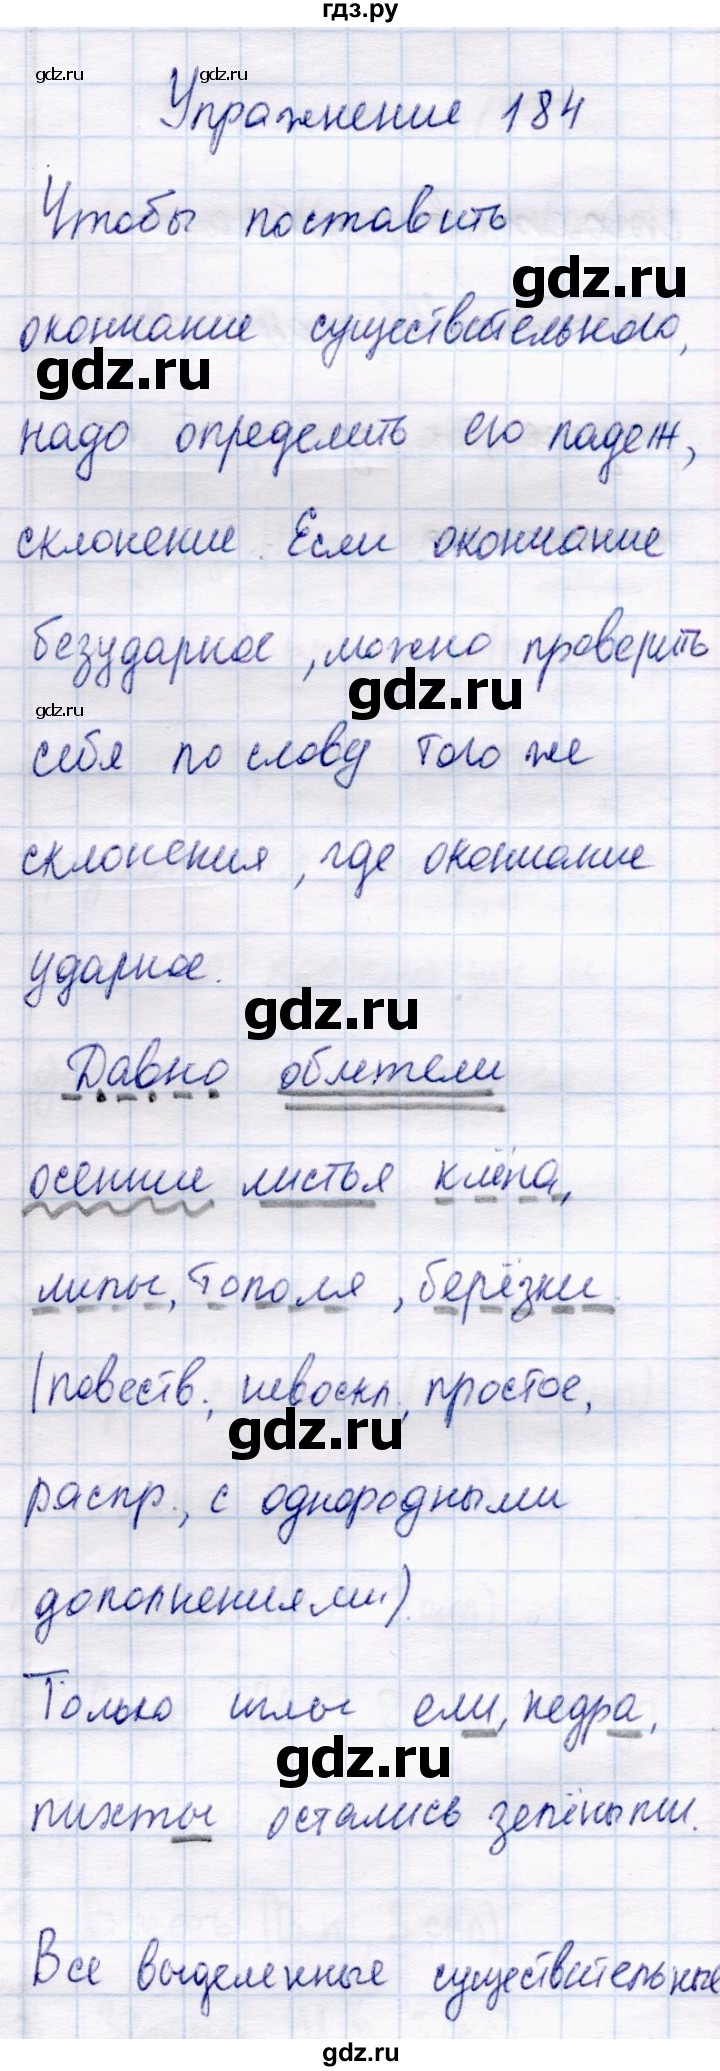 гдз.ру
gdz.ru gdz.ru
Упражнение 184
Чтобы поставить
gdz.ru
окончание существительного,
gdz.ru
надо определить его падеж,
склонение. Если окончание
безударное, можно проверить
gdz.ru
gdz.ru
себя по слову того же
склонения, где окончание
ударное.
gdz.ru
Давно облетели
осенние листья клёна,
липы, тополя, берёзки.
(повеств., невоскл., простое,
gdz.ru
распр., с однородными
дополнениями).
Только иглы ели, кедра,
gdz.ru
пихты остались зелёными.
gdz.ru
Все выделенные существительные
gdz.ru